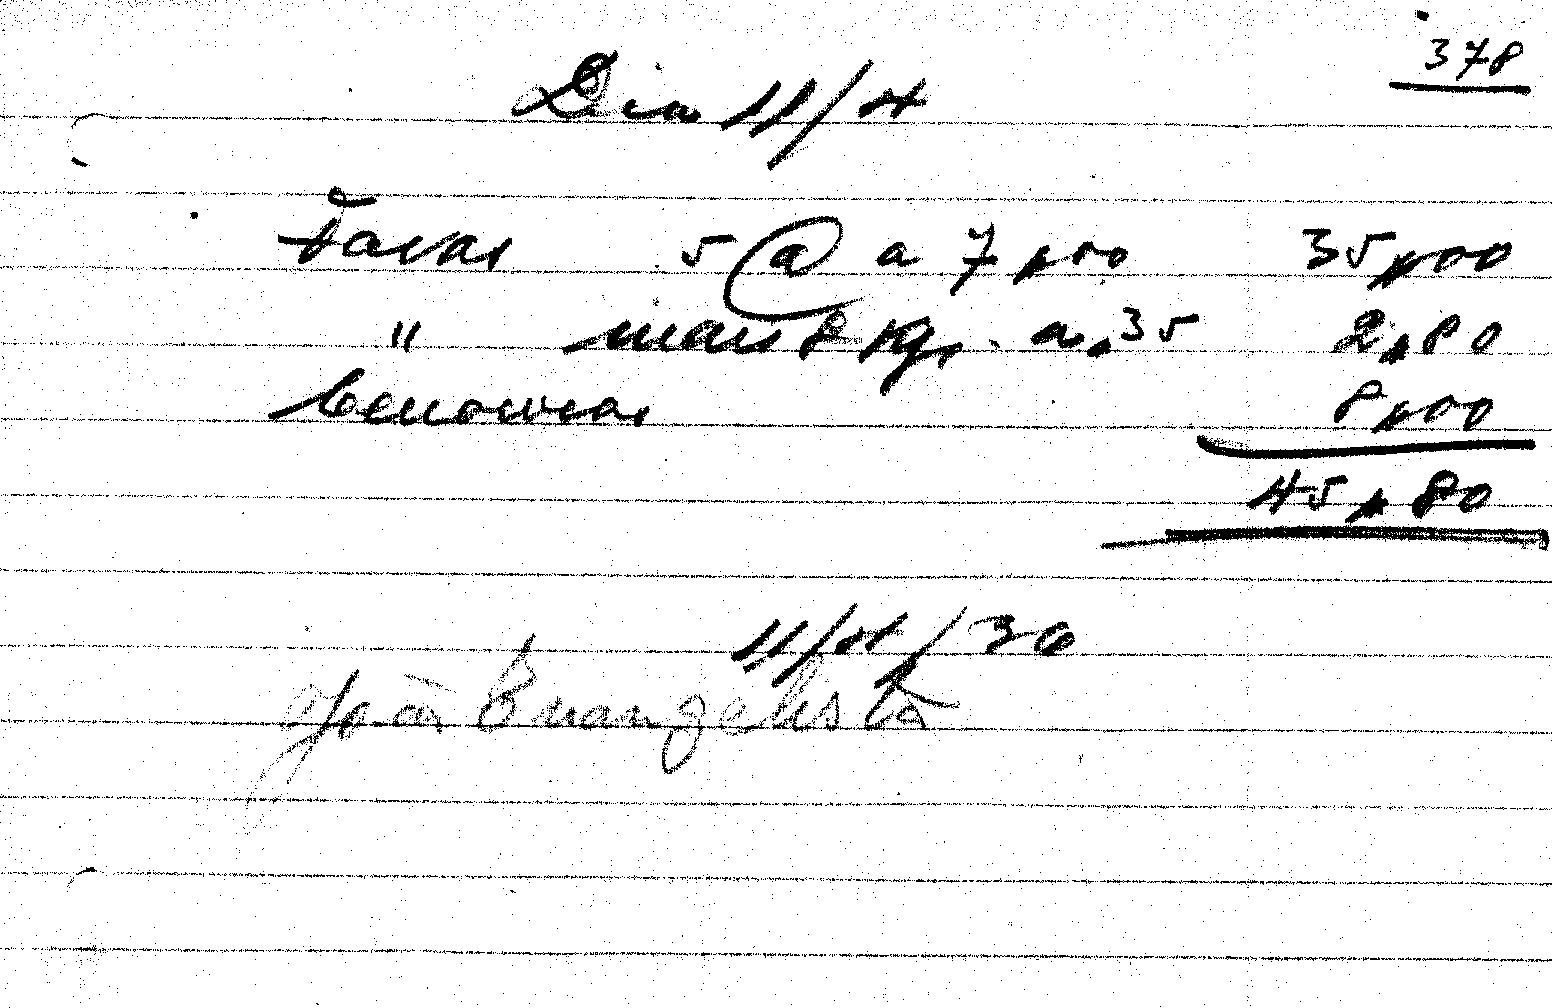 378
Dia 11/4
Favas 5 @ a 7,00 35,00
" mais 8 Kg. a .35 2,80
Cenouras 8,00
45,80
11/4/30
João Evangelista